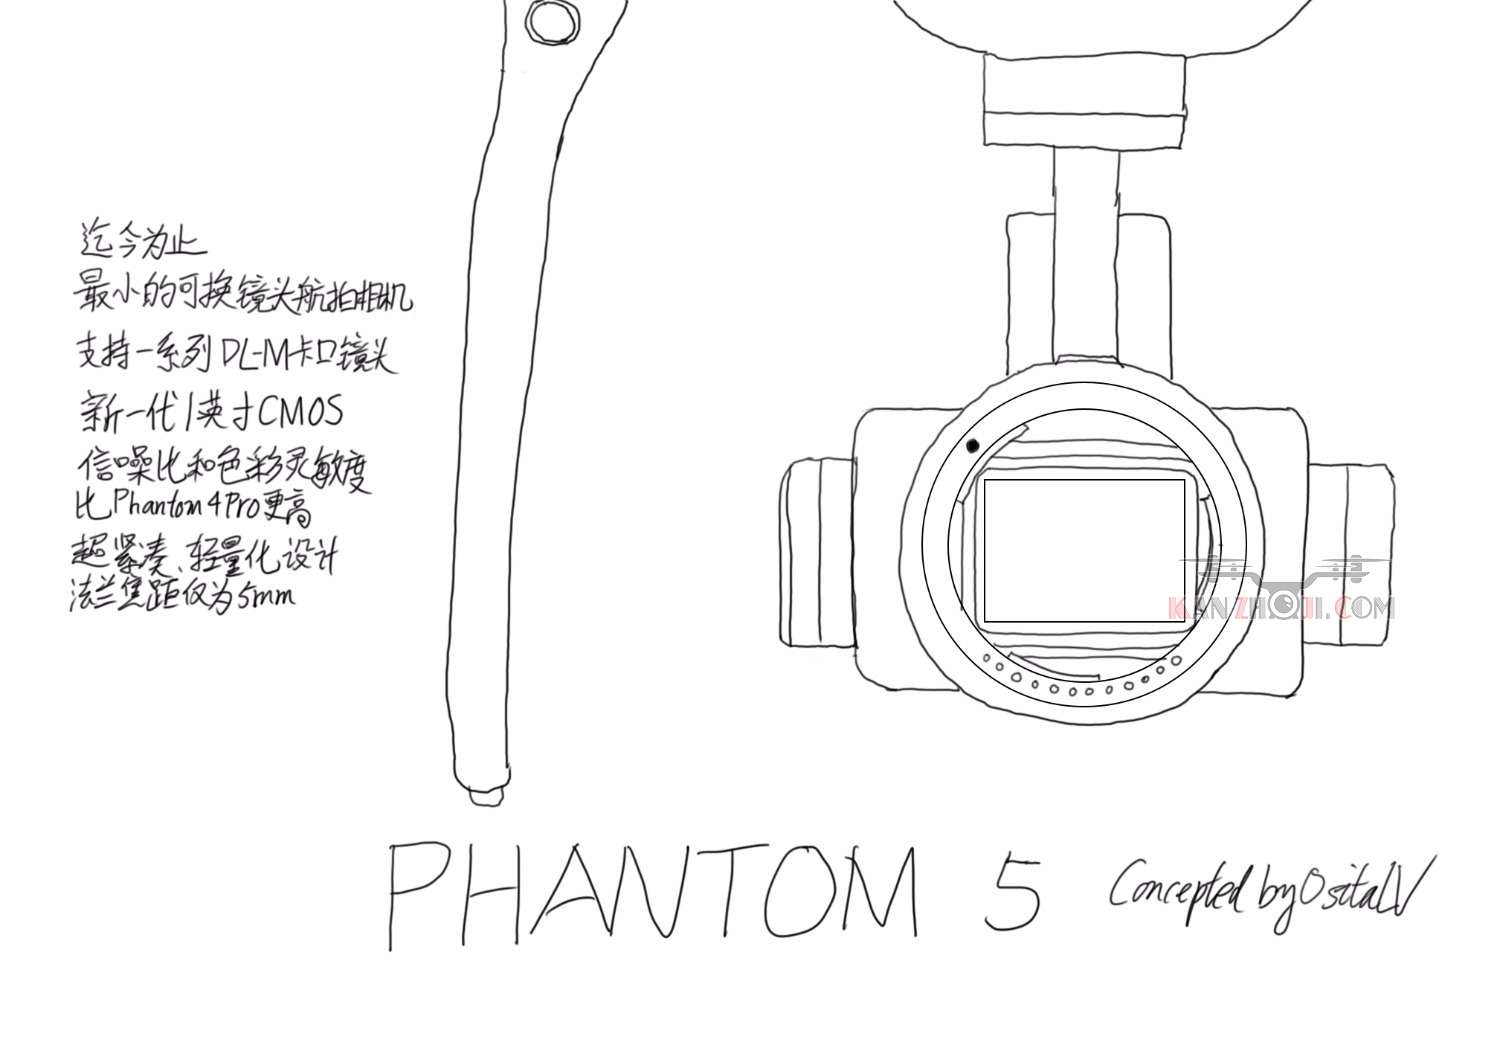 迄今为止
最小的可换镜头航拍相机
支持一系列DL-M卡口镜头
新一代1英寸CMOS
信噪比和色彩灵敏度
比Phantom4Pro更高
超紧凑、轻量化设计
法兰焦距仅为5mm
KANZHAOJI.COM
PHANTOM 5
Concepted by OsitaLV